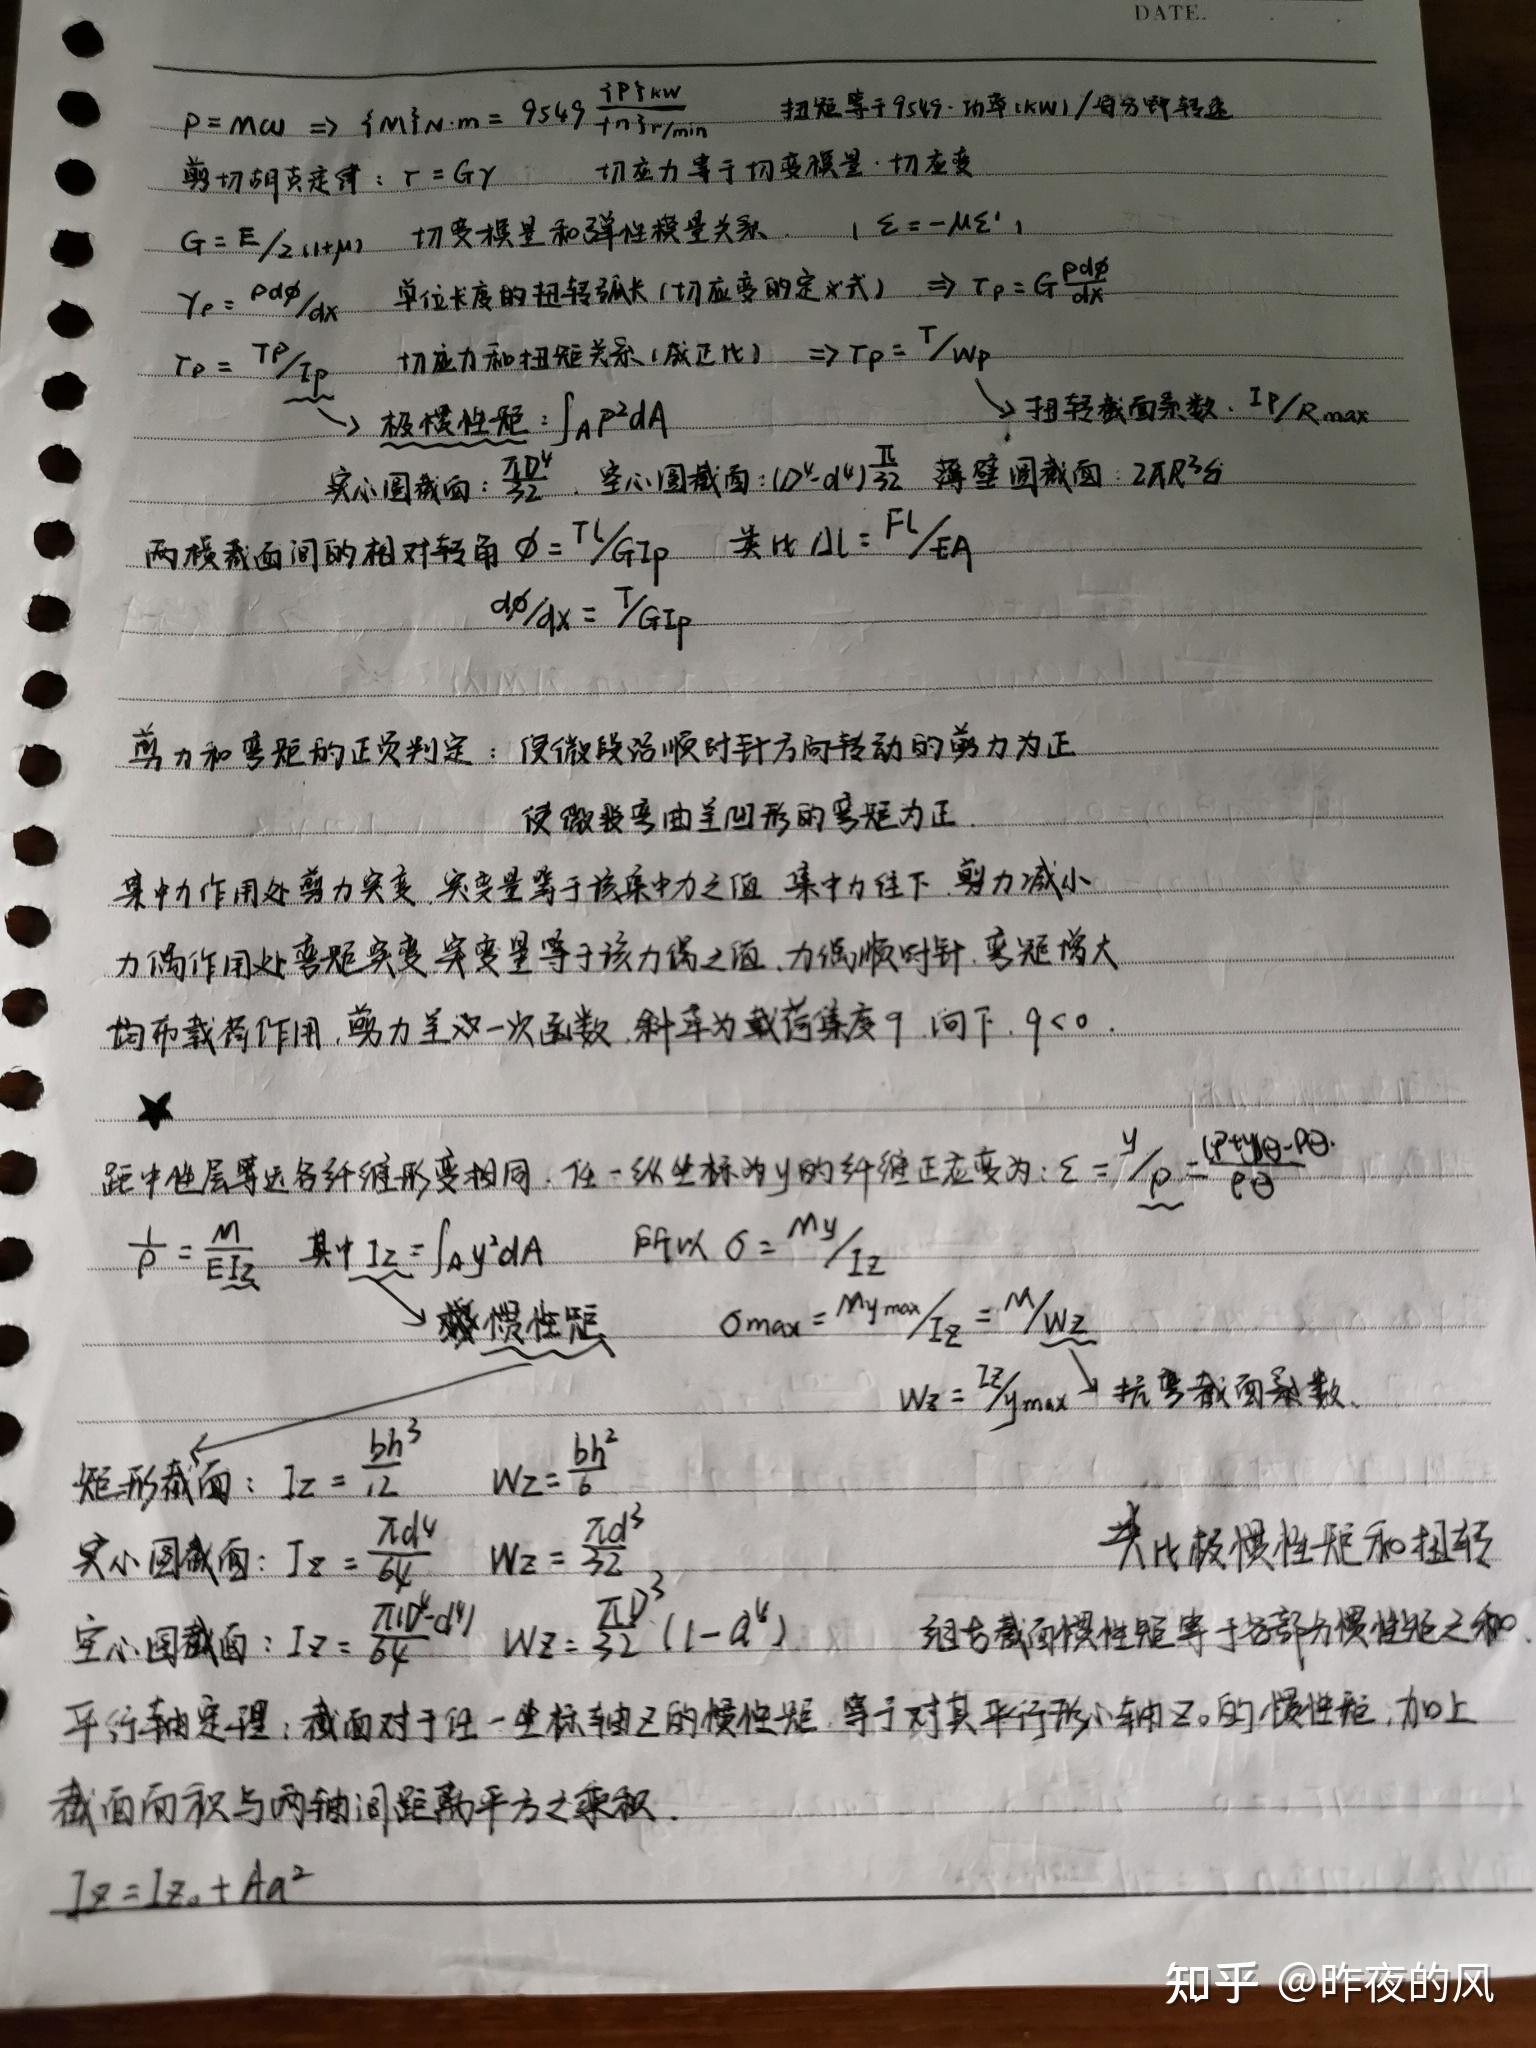 DATE.
P=Mω ⇒ {M}N·m = 9549 {P}kW/{n}r/min 扭矩等于9549·功率(KW)/每分钟转速
剪切胡克定律: τ=Gγ 切应力等于切变模量·切应变
G=E/2(1+μ) 切变模量和弹性模量关系. (ε=-με')
γρ=ρdφ/dx 单位长度的扭转弧长(切应变的定义式) ⇒ τρ=Gρdφ/dx
τρ=Tρ/Ip 切应力和扭矩关系(成正比) ⇒ τρ=T/Wp
→ 极惯性矩: ∫Aρ²dA → 扭转截面系数. Ip/Rmax
实心圆截面: πD⁴/32. 空心圆截面: (D⁴-d⁴)π/32 薄壁圆截面: 2πR³δ
两横截面间的相对转角 φ=Tl/GIp 类比 Δl=Fl/EA
dφ/dx=T/GIp
剪力和弯矩的正负判定: 使微段沿顺时针方向转动的剪力为正
使微段弯曲呈凹形的弯矩为正.
集中力作用处剪力突变,突变量等于该集中力之值.集中力往下,剪力减小
力偶作用处弯矩突变,突变量等于该力偶之值,力偶顺时针,弯矩增大
均布载荷作用,剪力呈一次函数,斜率为载荷集度q,向下,q<0.
★
距中性层等远各纤维形变相同.任一纵坐标为y的纤维正应变为: ε=y/ρ=(ρ+y)θ-ρθ/ρθ
1/ρ=M/EIz 其中Iz=∫Ay²dA 所以 σ=My/Iz
→ 惯性矩 σmax=Mymax/Iz=M/Wz
Wz=Iz/ymax → 抗弯截面系数.
矩形截面: Iz=bh³/12 Wz=bh²/6
实心圆截面: Iz=πd⁴/64 Wz=πd³/32 类比极惯性矩和扭转
空心圆截面: Iz=π(D⁴-d⁴)/64 Wz=πD³/32(1-α⁴) 组合截面惯性矩等于各部分惯性矩之和.
平行轴定理: 截面对于任一坐标轴Z的惯性矩,等于对其平行形心轴Z₀的惯性矩,加上
截面面积与两轴间距离平方之乘积.
Iz=Iz₀+Aa²
知乎 @昨夜的风